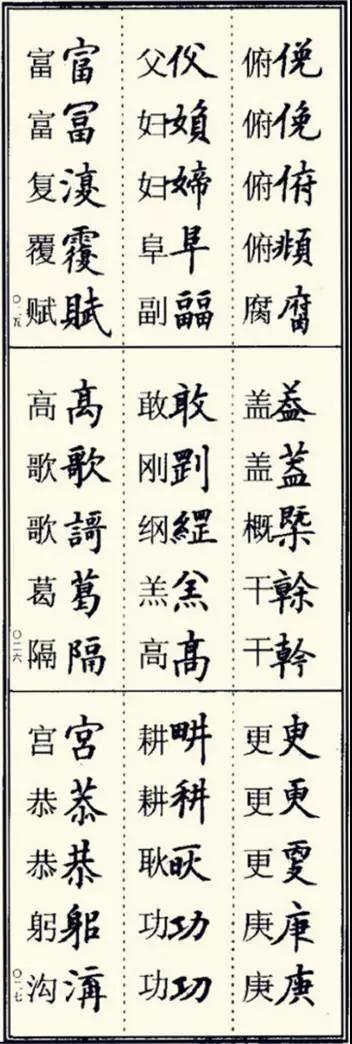 俯
俯俛
俯俯
俯頫
腐腐
父
妇媍
妇婦
阜阜
副
富富
富冨
复
覆覆
赋賦
〇一五
盖葢
盖蓋
概槩
干
干幹
敢敢
刚
纲
羔
高髙
高高
歌歌
歌謌
葛葛
隔隔
〇一六
更
更更
更
庚庚
庚
耕畊
耕
耿
功功
功㓛
宫宫
恭恭
恭
躬
沟溝
〇一七